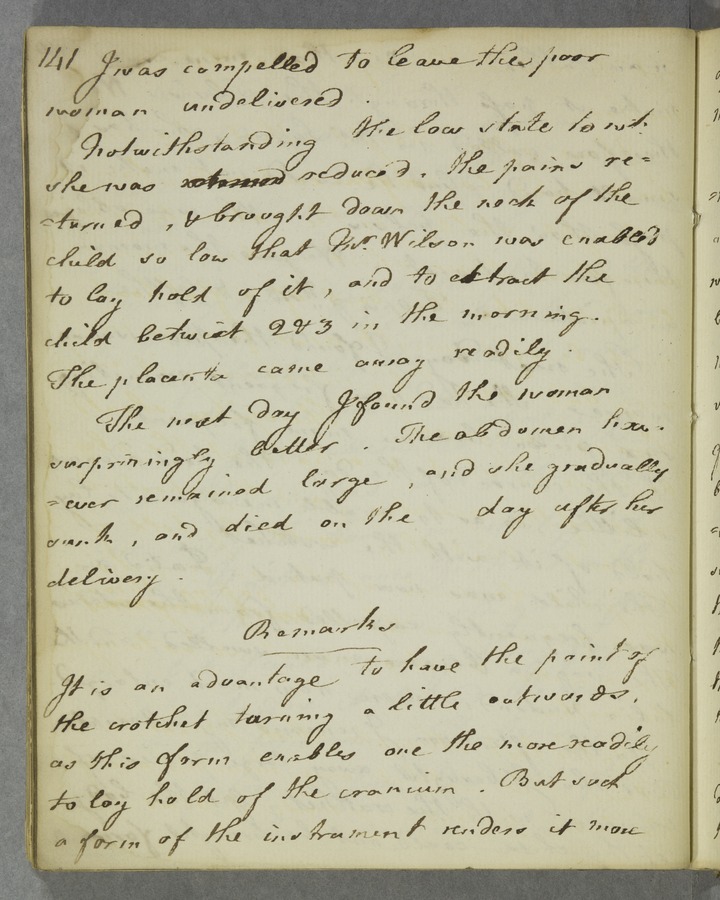 141 I was compelled to leave the poor
woman undelivered.
Notwithstanding the low state to wh.
she was reduced, the pains re=
=turned, & brought down the neck of the
child so low that Mr. Wilson was enabled
to lay hold of it, and to extract the
child betwixt 2 & 3 in the morning.
The placenta came away readily.
The next day I found the woman
surprisingly better. The abdomen how-
=ever remained large, and she gradually
sunk, and died on the day after her
delivery.
Remarks
It is an advantage to have the point of
the crotchet turning a little outwards,
as this form enables one the more readily
to lay hold of the cranium. But such
a form of the instrument renders it more